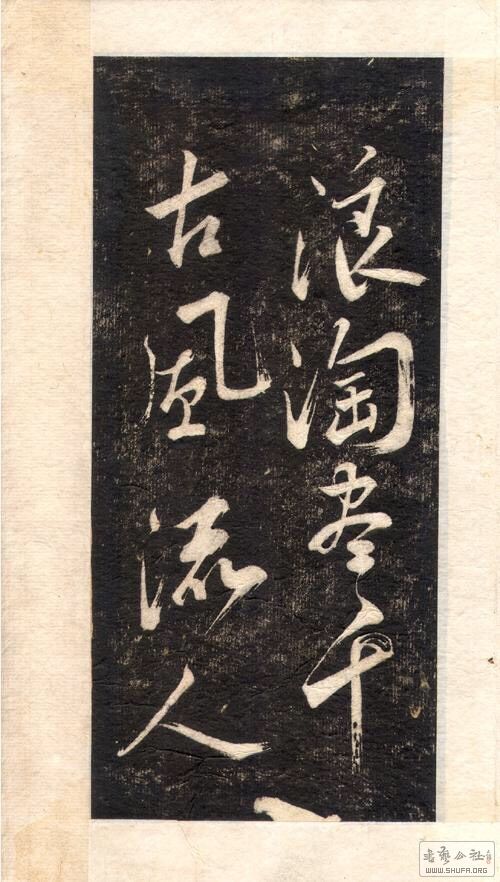 浪淘盡千
古風流人
书艺公社
WWW.SHUFA.ORG